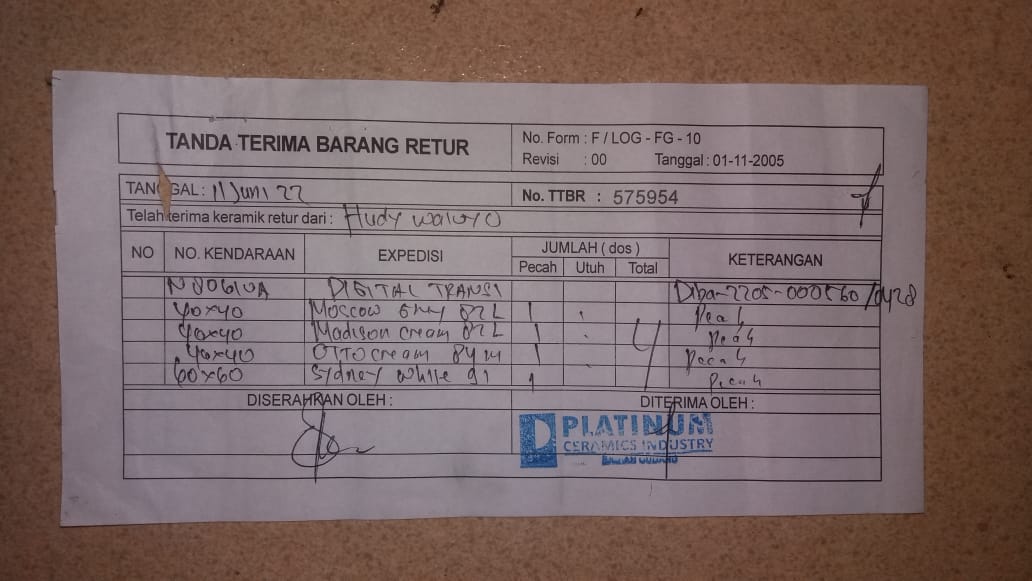 TANDA TERIMA BARANG RETUR
No. Form : F / LOG - FG - 10
Revisi : 00 Tanggal : 01-11-2005
TANGGAL : 11 Juni 22
No. TTBR : 575954
Telah terima keramik retur dari : Hudy waluyo
NO NO. KENDARAAN EXPEDISI JUMLAH ( dos ) KETERANGAN
Pecah Utuh Total
DIGITAL TRANSI
40x40 Moscow Grey 82 L 1 Pecah
40x40 Madison cream 82 L 1 4 Pecah
40x40 OTTO cream 84 M 1 Pecah
60x60 Sydney white 91 1 Pecah
DISERAHKAN OLEH : DITERIMA OLEH :
PLATINUM
CERAMICS INDUSTRY